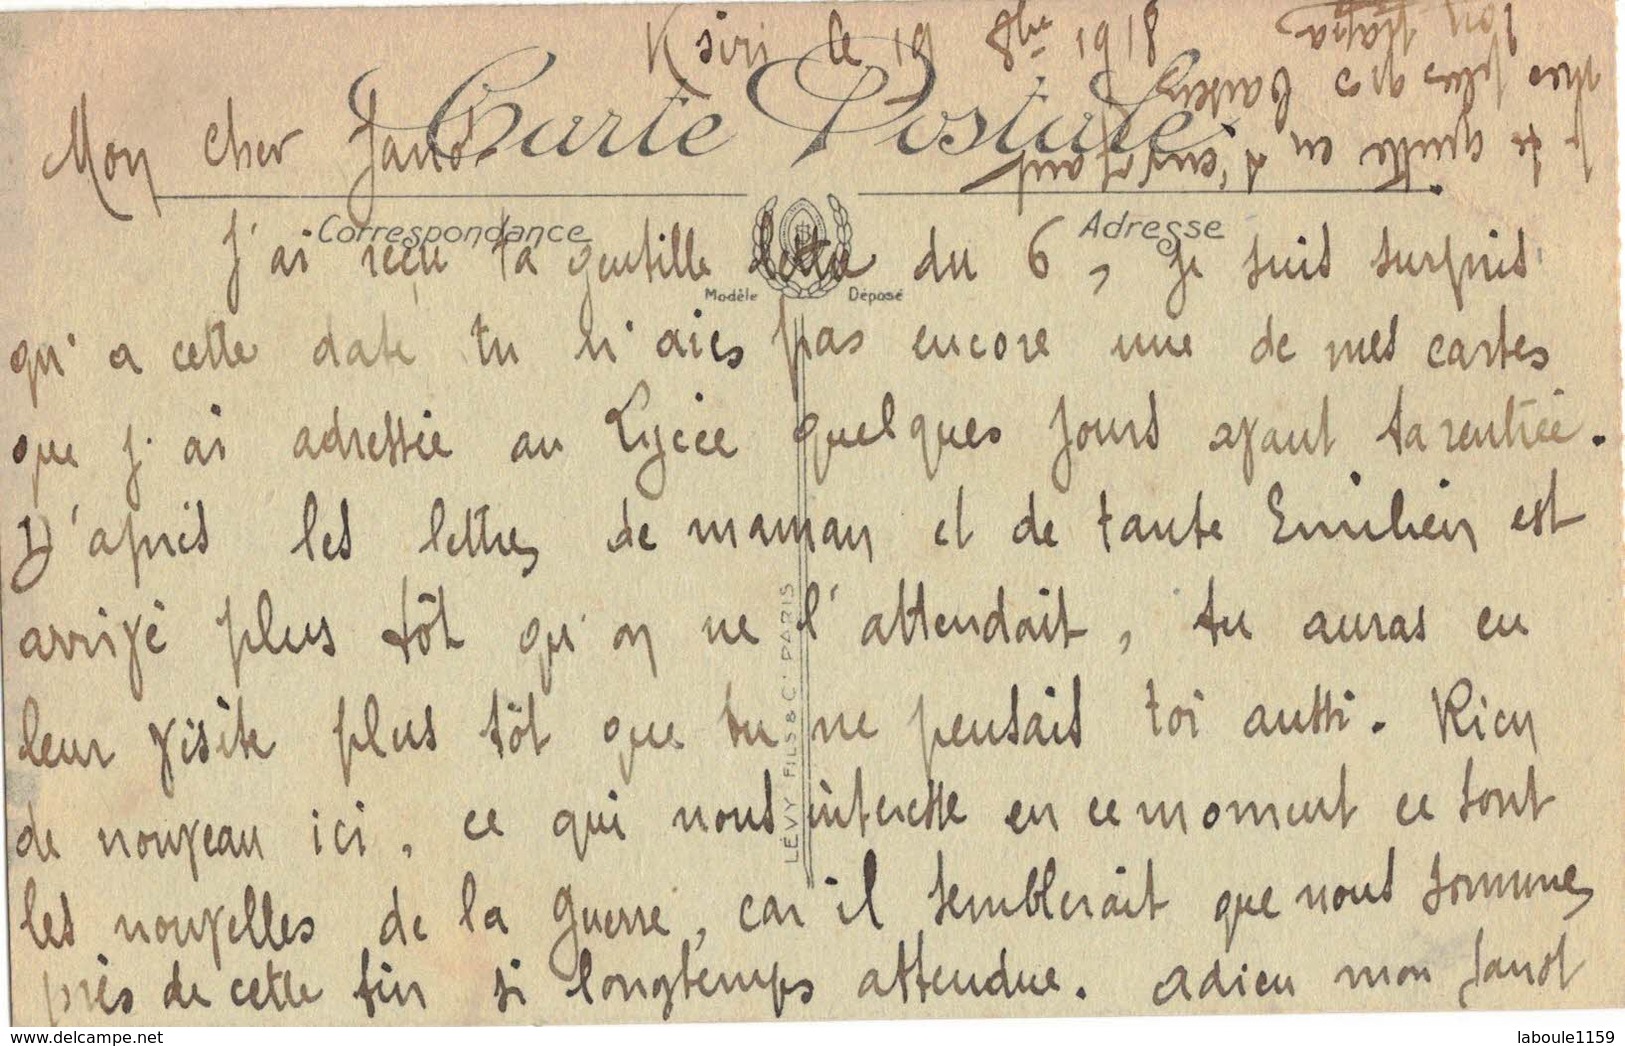 Ksiri le 19 8bre 1918
Carte Postale
Mon cher Janot
Correspondance
Adresse
J'ai reçu ta gentille lettre du 6, je suis surpris
Modèle Déposé
qu'a cette date tu n'aies pas encore une de mes cartes
que j'ai adressée au Lycée quelques jours avant ta rentrée.
D'après les lettres de maman et de tante Emilien est
arrivé plus tôt qu'on ne l'attendait, tu auras eu
leur visite plus tôt que tu ne pensais toi aussi. Rien
de nouveau ici, ce qui nous intéresse en ce moment ce sont
les nouvelles de la guerre, car il semblerait que nous sommes
près de cette fin si longtemps attendue. Adieu mon Janot
je te quitte en t'envoyant
mes plus gros baisers
Ton Papa
LÉVY FILS & Cie PARIS
delcampe.net
laboule1159